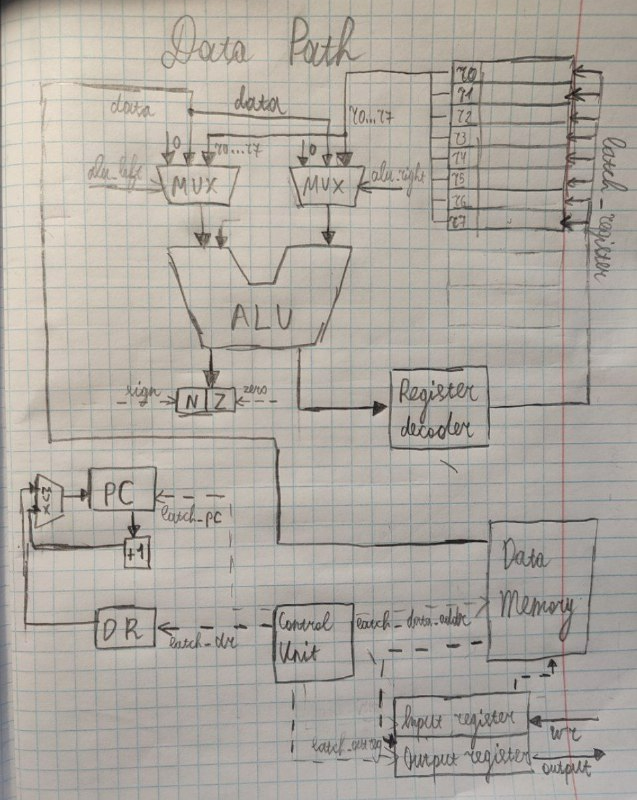 Data Path
data
data
r0...r7
0
r0...r7
0
alu_left
MUX
MUX
alu_right
r0
r1
r2
r3
r4
r5
r6
r7
latch_register
ALU
sign
N Z
zero
Register
decoder
MUX
PC
latch_PC
+1
DR
latch_dr
Control
Unit
latch_data_addr
Data
Memory
Input register
wr
Output register
output